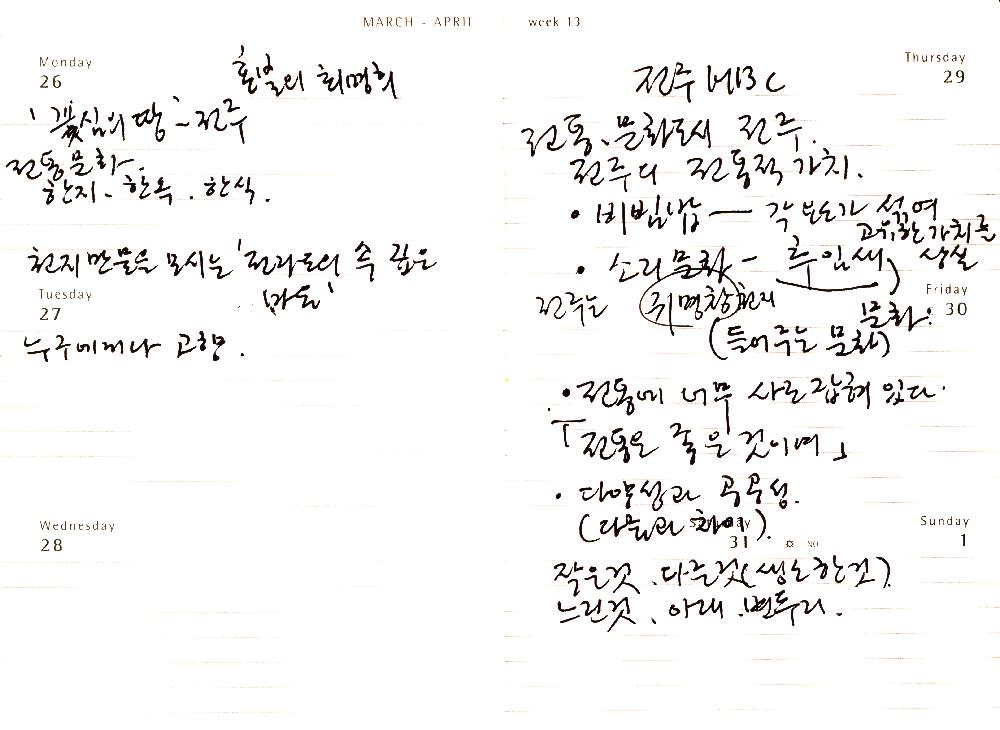 MARCH - APRIL
Monday
26
혼불의 최명희
'꽃심의 땅' - 전주
전통문화.
한지. 한옥. 한식.
천지만물을 모시는 '전라도의 속 깊은
마을'
Tuesday
27
누구에게나 고향.
Wednesday
28
week 13
Thursday
29
전주 MBC
전통, 문화도시 전주.
전주의 전통적 가치.
• 비빔밥 — 각 요소가 섞여
고유한 가치를
상실
• 소리문화 - 추임새
전주는 귀명창 천지
Friday
30
문화:
(들어주는 문화)
• 전통에 너무 사로잡혀 있다.
「전통은 죽은 것이며」
• 다양성과
(다름과 차이).
31
NO
Sunday
1
작은것. 다른것(생소한것)
느린것. 아래. 변두리.